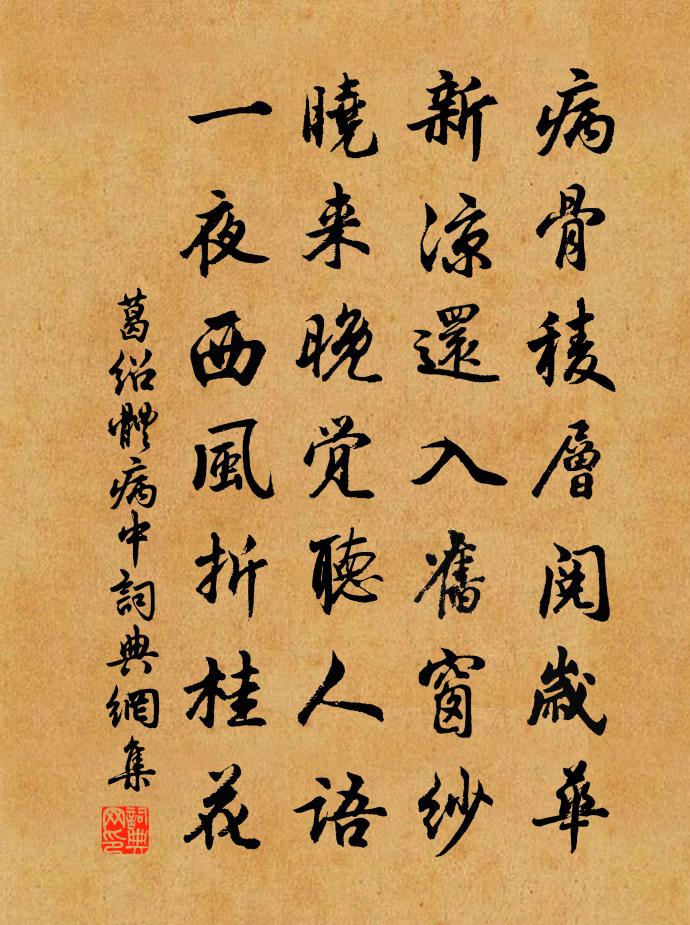 病骨稜層閱歲華
新涼還入舊窗紗
曉来晚覺聽人語
一夜西風折桂花
葛紹體病中詞典網集
詞典网印